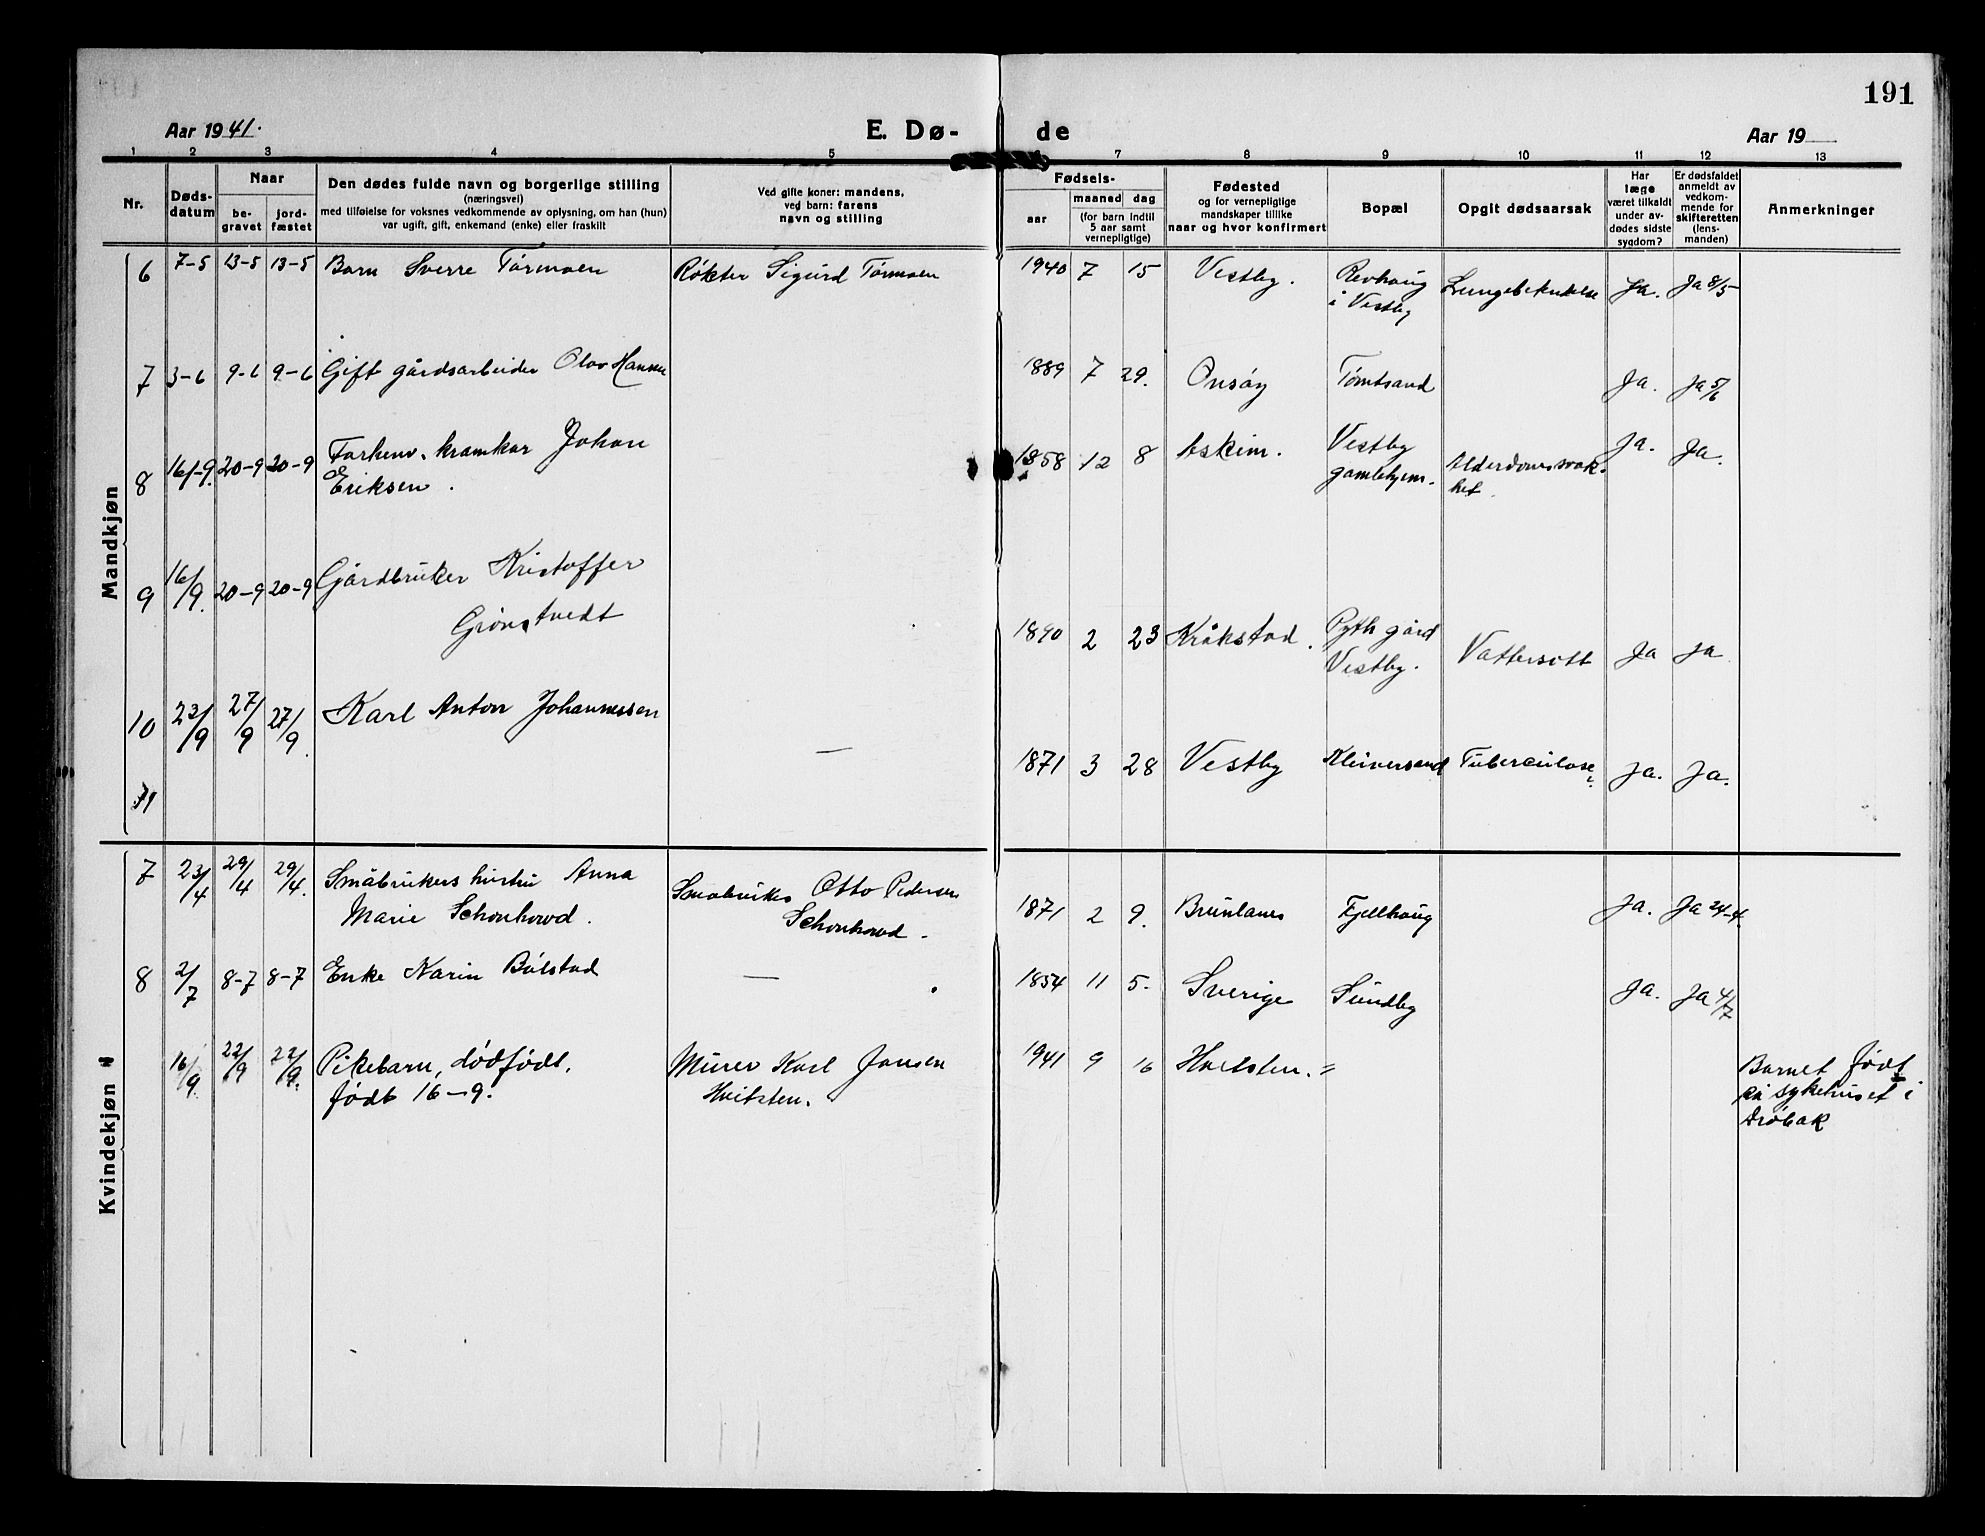 191
Aar 1941. E. Dø- de Aar 19
1 2 3 4 5 7 8 9 10 11 12 13
Nr.
Døds-
datum
Naar
be-
gravet
jord-
fæstet
Den dødes fulde navn og borgerlige stilling
(næringsvei)
med tilføielse for voksnes vedkommende av oplysning, om han (hun)
var ugift, gift, enkemand (enke) eller fraskilt
Ved gifte koner: mandens,
ved barn: farens
navn og stilling
Fødsels-
aar
maaned dag
(for barn indtil
5 aar samt
vernepligtige)
Fødested
og for vernepligtige
mandskaper tillike
naar og hvor konfirmert
Bopæl
Opgit dødsaarsak
Har
læge
været tilkaldt
under av-
dødes sidste
sygdom?
Er dødsfaldet
anmeldt av
vedkom-
mende for
skifteretten
(lens-
manden)
Anmerkninger
Mandkjøn
6 7-5 13-5 13-5 Barn Sverre Tørmoen Røkter Sigurd Tørmoen 1940 7 15 Vestby. Revhaug Ja. Ja 8/5
i Vestby
7 3-6 9-6 9-6 Gift gårdsarbeider Olav Hansen 1889 7 29. Onsøy Tømtsand Ja. Ja 5/6
8 16/-9. 20-9 20-9 Forhenv. kramkar Johan 1858 12 8 Askim. Vestby Alderdomssvak- Ja. Ja.
Eriksen. gamlehjem. het.
9 16/9. 20-9 20-9 Gårdbruker Kristoffer
Grønstvedt 1890 2 23 Kråkstad. Pyth gård Vattersott Ja Ja
Vestby.
10 23/9 27/9 27/9. Karl Anton Johannessen
— 1871 3 28 Vestby Kleiversand Tuberculose Ja. Ja.
11
Kvindekjøn
7 23/4 29/4 29/4. Småbrukers hustru Anna Småbruker Otto Pedersen
Marie Schonhowd. Schonhowd. 1871 2 9. Brunlanes Fjellhaug Ja. Ja 24-4.
8 2/7 8-7 8-7 Enke Karin Bølstad — 1854 11 5. Sverige Sundby Ja. Ja 4/7
16/9. 22/9 22/9. Pikebarn, dødfødt. Murer Karl Jansen 1941 9 16 Hvitsten. Barnet født
født 16-9. Hvitsten. på sykehuset i
Drøbak